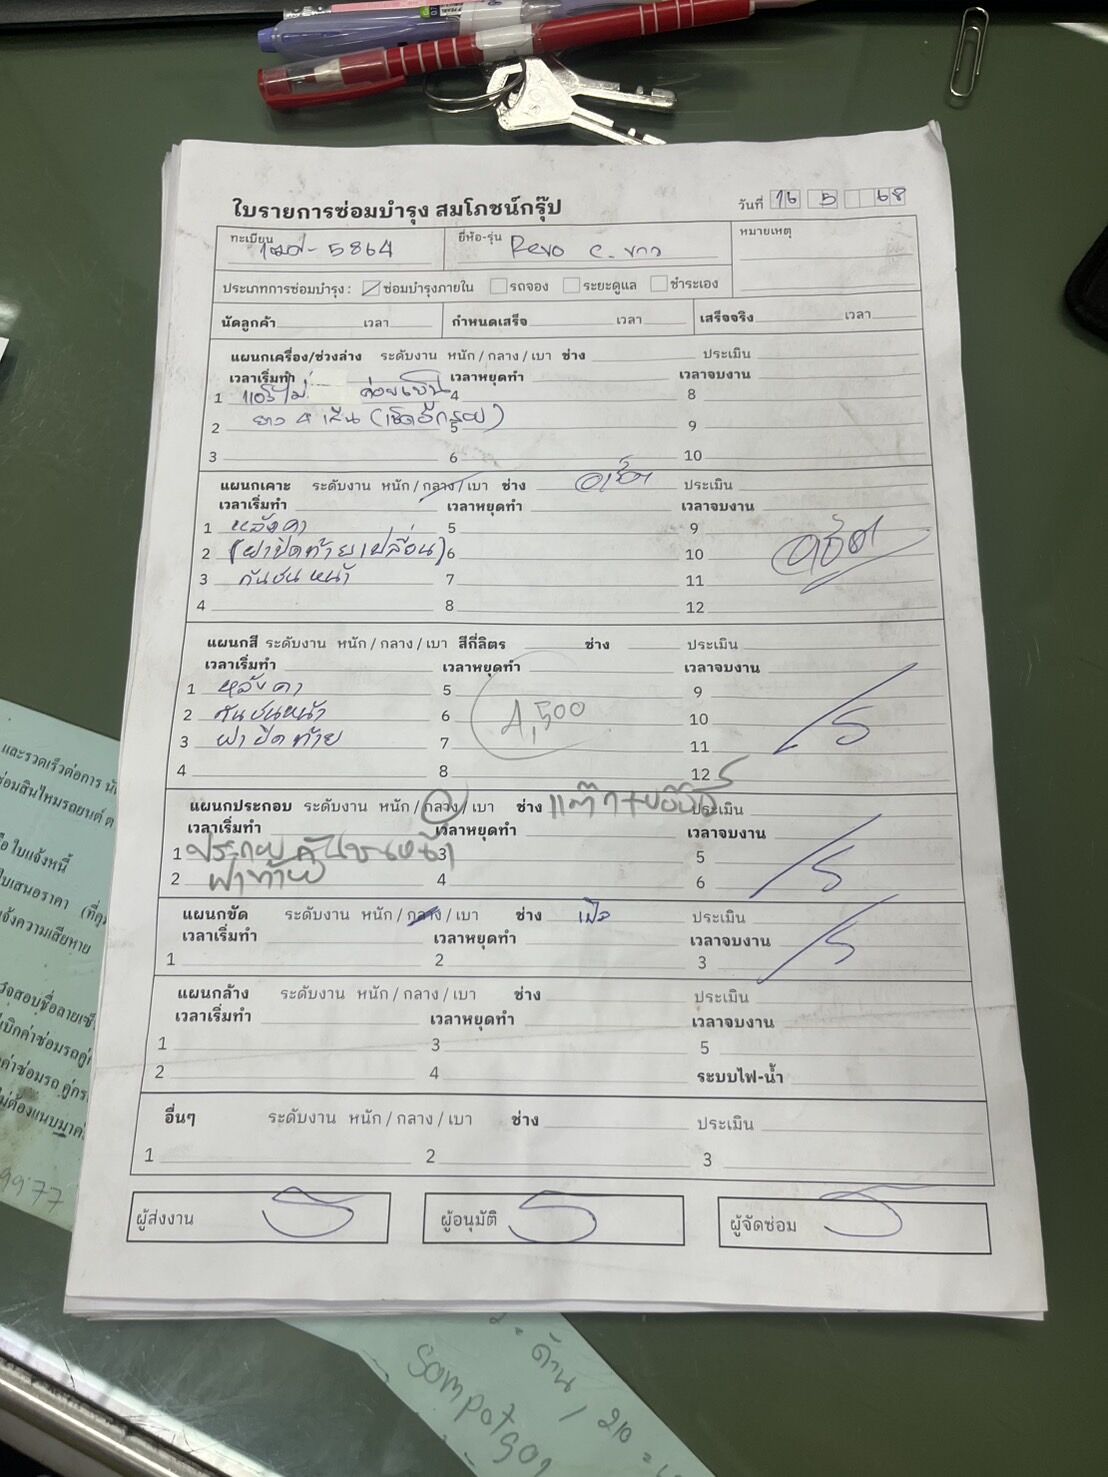 ใบรายการซ่อมบำรุง สมโภชน์กรุ๊ป
วันที่ 16 5 68
ทะเบียน 5864 ยี่ห้อ-รุ่น Revo c. ขาว หมายเหตุ
ประเภทการซ่อมบำรุง : ซ่อมบำรุงภายใน รถจอง ระยะดูแล ชำระเอง
นัดลูกค้า เวลา กำหนดเสร็จ เวลา เสร็จจริง เวลา
แผนกเครื่อง/ช่วงล่าง ระดับงาน หนัก / กลาง / เบา ช่าง ประเมิน
เวลาเริ่มทำ เวลาหยุดทำ เวลาจบงาน
1 แอร์ไม่ค่อยเย็น 4 8
2 ยาง 4 เส้น 5 9
3 6 10
แผนกเคาะ ระดับงาน หนัก / กลาง / เบา ช่าง ประเมิน
เวลาเริ่มทำ เวลาหยุดทำ เวลาจบงาน
1 หลังคา 5 9
2 (ฝาปิดท้ายเปลี่ยน) 6 10
3 กันชนหน้า 7 11
4 8 12
แผนกสี ระดับงาน หนัก / กลาง / เบา สีกี่ลิตร ช่าง ประเมิน
เวลาเริ่มทำ เวลาหยุดทำ เวลาจบงาน
1 หลังคา 5 9
2 กันชนหน้า 6 4,500 10
3 ฝาปิดท้าย 7 11
4 8 12
แผนกประกอบ ระดับงาน หนัก / กลาง / เบา ช่าง ประเมิน
เวลาเริ่มทำ เวลาหยุดทำ เวลาจบงาน
1 ประกอบกันชนหน้า 3 5
2 ฝาท้าย 4 6
แผนกขัด ระดับงาน หนัก / กลาง / เบา ช่าง ประเมิน
เวลาเริ่มทำ เวลาหยุดทำ เวลาจบงาน
1 2 3
แผนกล้าง ระดับงาน หนัก / กลาง / เบา ช่าง ประเมิน
เวลาเริ่มทำ เวลาหยุดทำ เวลาจบงาน
1 3 5
2 4 ระบบไฟ-น้ำ
อื่นๆ ระดับงาน หนัก / กลาง / เบา ช่าง ประเมิน
1 2 3
ผู้ส่งงาน ผู้อนุมัติ ผู้จัดซ่อม
และรวดเร็วต่อการ
ซ่อมสินไหมรถยนต์
ใบแจ้งหนี้
ใบเสนอราคา
แจ้งความเสียหาย
9977
ด้าน / 210 =